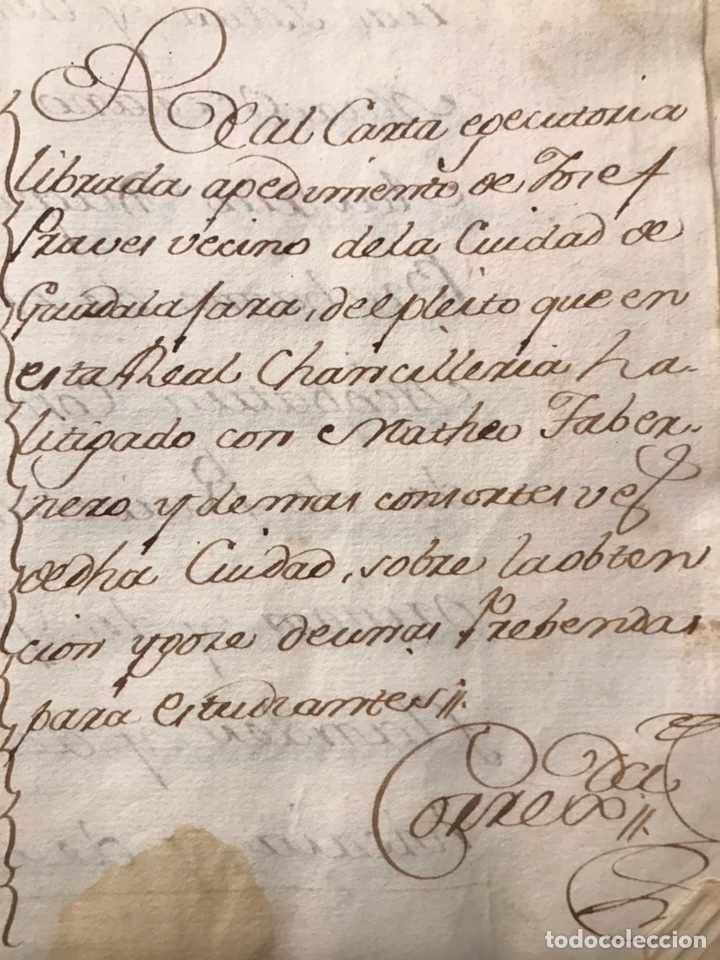 Real Carta egecutoria
librada a pedimiento de Josef
Praves vecino de la Cuidad de
Guadalajara, del pleito que en
esta Real Chancilleria ha
litigado con Matheo Taber-
nero y demas consortes vez
de dha Cuidad, sobre la obten
cion y goze de unas Prebendas
para estudiantes
todocoleccion